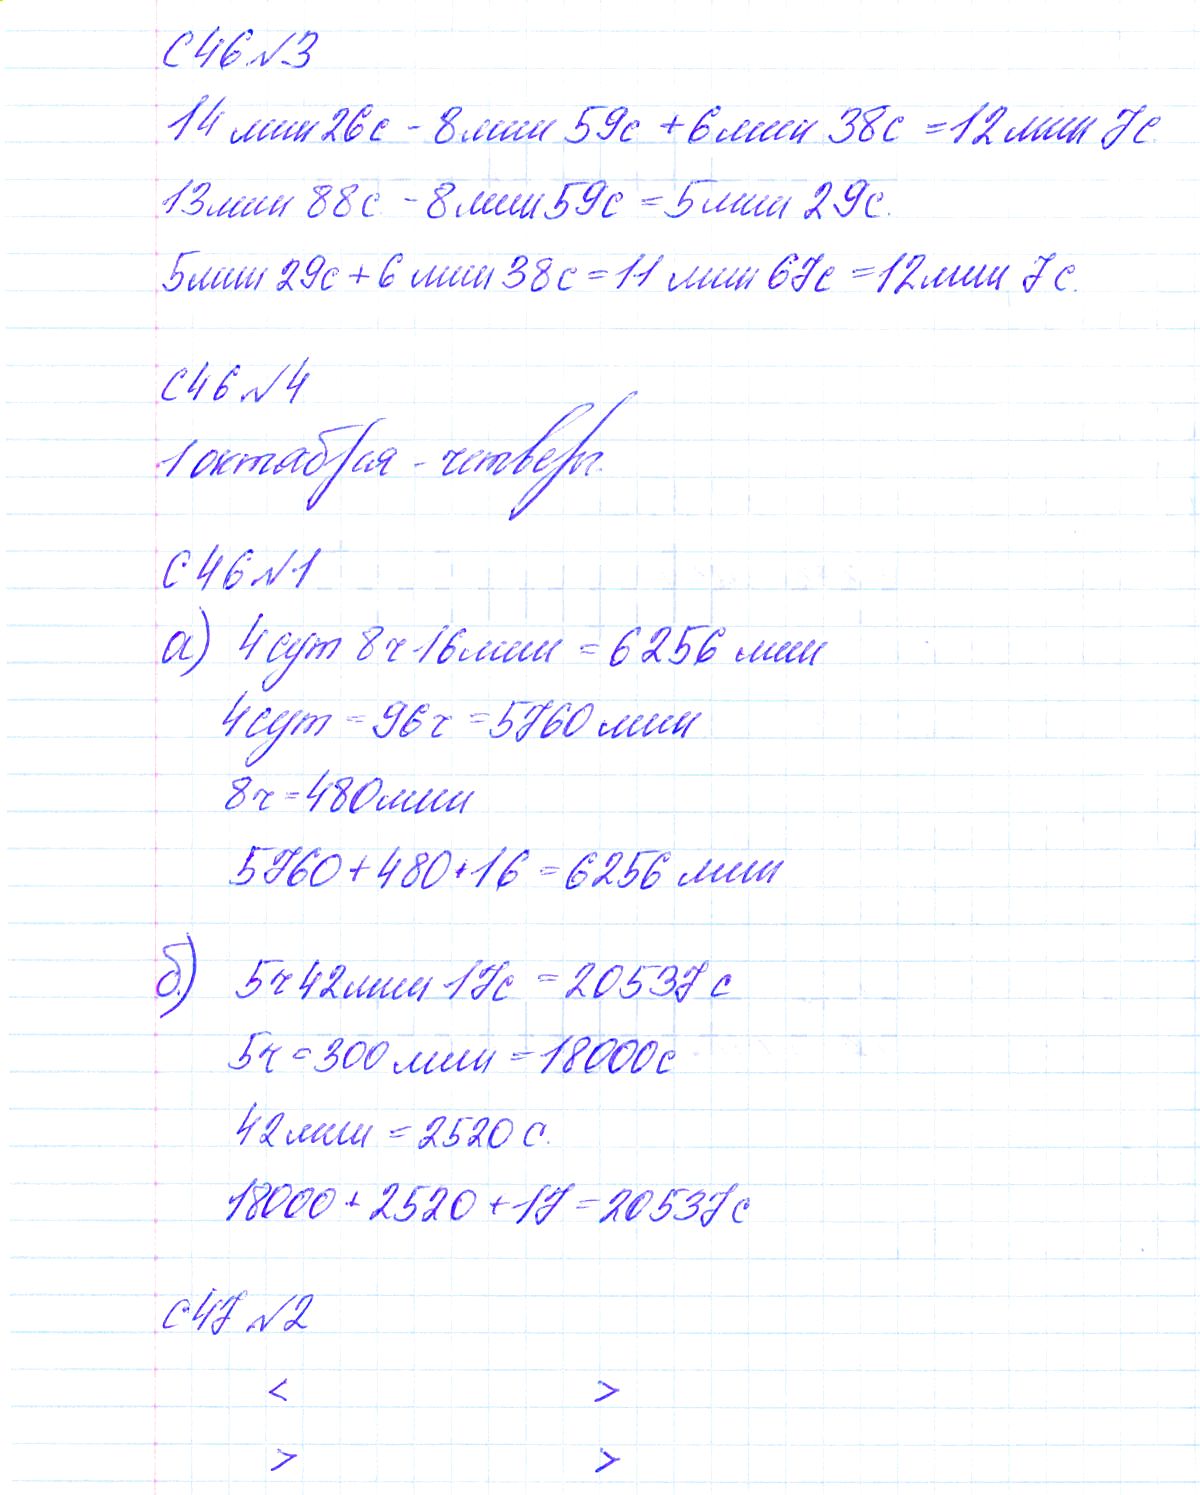 С46 №3
14 мин 26с - 8 мин 59с + 6 мин 38с = 12 мин 7с.
13 мин 88с - 8 мин 59с = 5 мин 29с.
5 мин 29с + 6 мин 38с = 11 мин 67с = 12 мин 7с.
С46 №4
1 октября - четверг.
С46 №1
а) 4 сут 8ч 16 мин = 6256 мин
4 сут = 96ч = 5760 мин
8ч = 480 мин
5760 + 480 + 16 = 6256 мин
б) 5ч 42 мин 17с = 20537с
5ч = 300 мин = 18000с
42 мин = 2520 с.
18000 + 2520 + 17 = 20537с
С47 №2
< >
> >